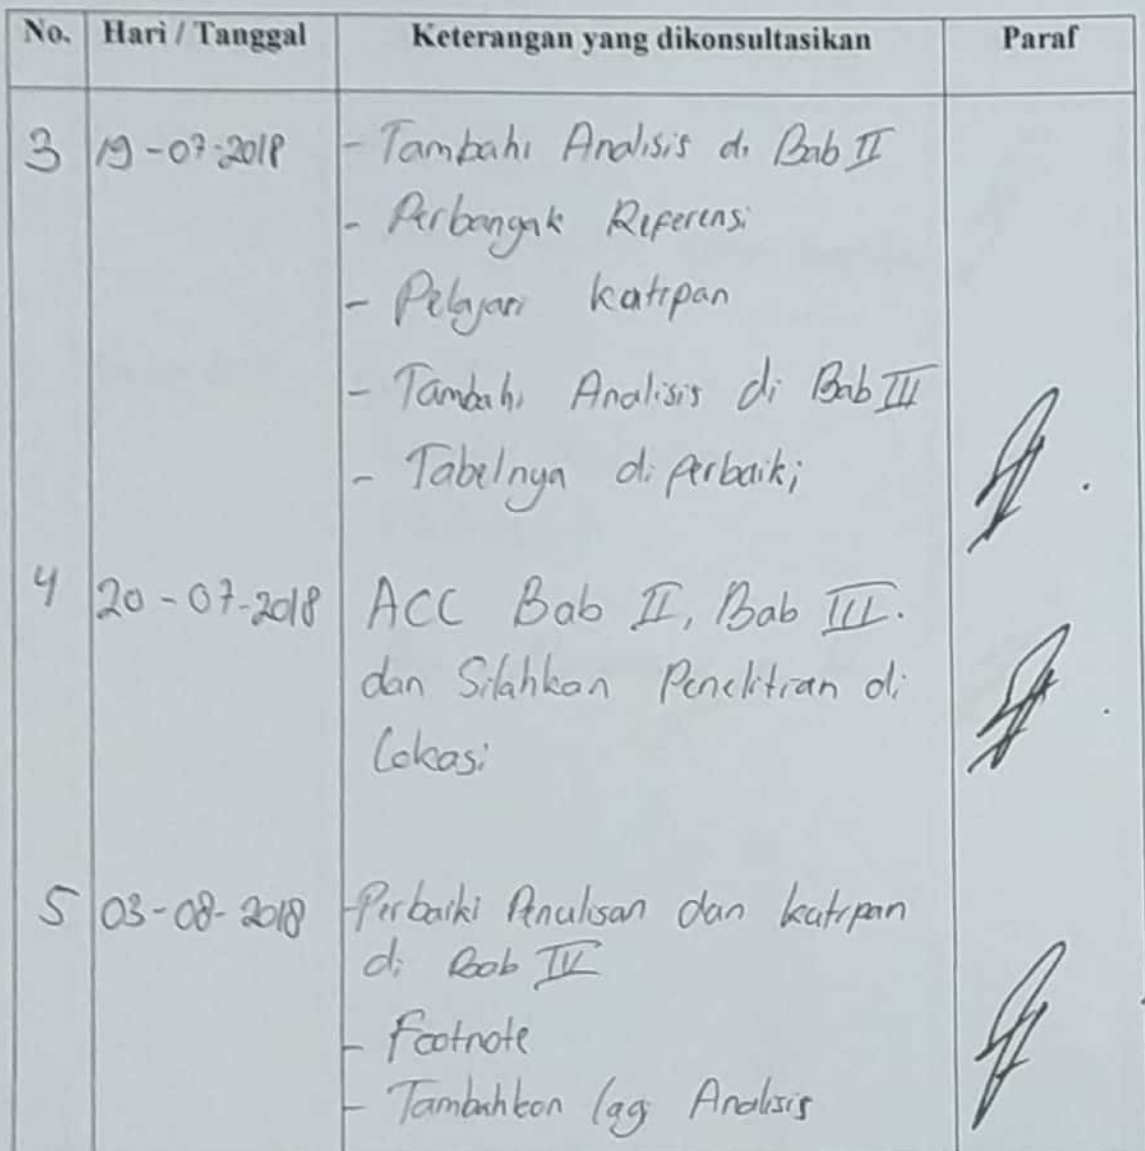 No. Hari / Tanggal Keterangan yang dikonsultasikan Paraf
3 19-07-2018 - Tambahi Analisis di Bab II
- Perbanyak Referensi
- Pelajari kutipan
- Tambahi Analisis di Bab III
- Tabelnya di perbaiki
4 20-07-2018 ACC Bab II, Bab III.
dan Silahkan Penelitian di
Lokasi
5 03-08-2018 - Perbaiki Penulisan dan kutipan
di Bab IV
- Footnote
- Tambahkan lagi Analisis